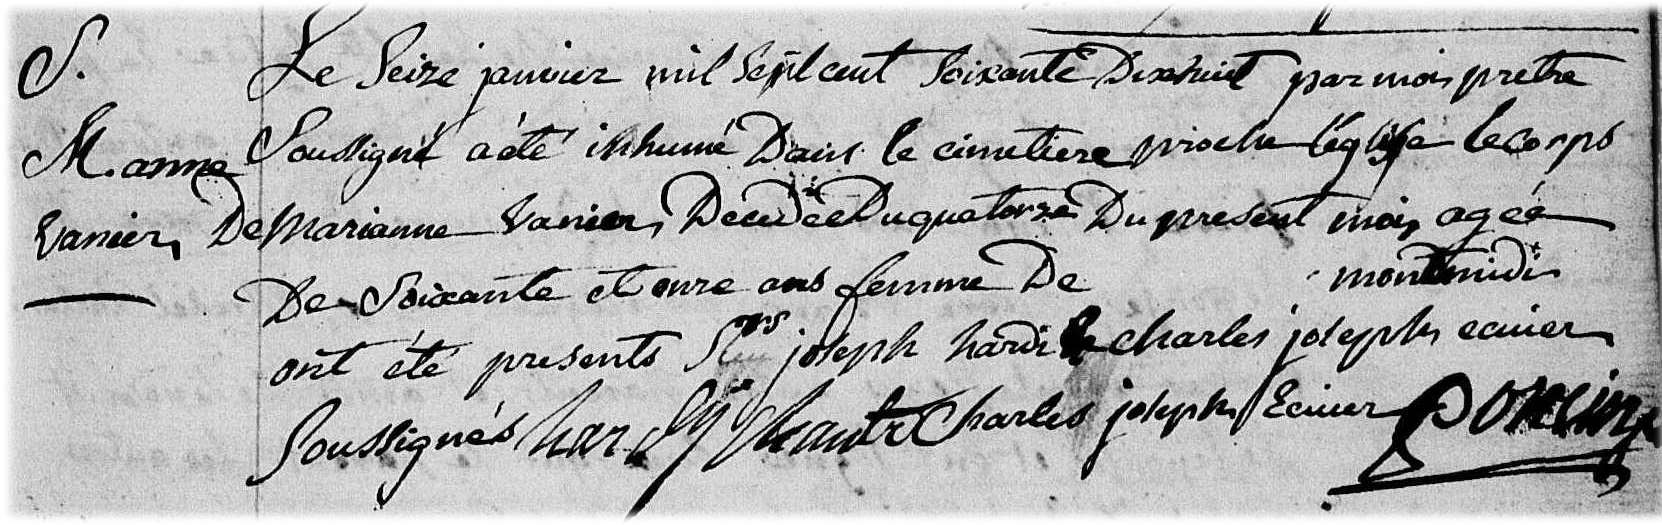 S.
M. anne
Vanier
Le Seize janvier mil Sept cent Soixante Dixhuit par moi pretre
Soussigné a été inhumé Dans le cimetiere proche l'église le corps
De Marianne Vanier, Decedée Du quatorze Du present mois agée
De Soixante et onze ans femme De montmidi
ont été presents Srs joseph hardi & charles joseph ecuier
Soussignés hardy chantre Charles joseph Ecuier Poncin